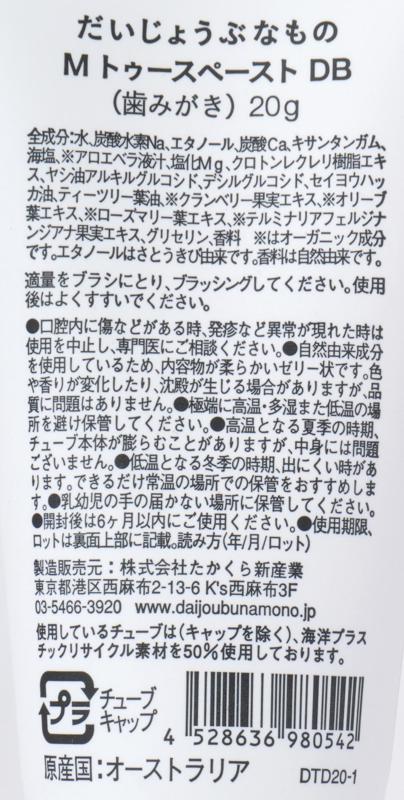 だいじょうぶなもの
M トゥースペースト DB
（歯みがき）20g
全成分：水、炭酸水素Na、エタノール、炭酸Ca、キサンタンガム、
海塩、※アロエベラ液汁、塩化Mg、クロトンレクレリ樹脂エキ
ス、ヤシ油アルキルグルコシド、デシルグルコシド、セイヨウハッ
カ油、ティーツリー葉油、※クランベリー果実エキス、※オリーブ
葉エキス、※ローズマリー葉エキス、※テルミナリアフェルジナ
ンジアナ果実エキス、グリセリン、香料　※はオーガニック成分
です。エタノールはさとうきび由来です。香料は自然由来です。
適量をブラシにとり、ブラッシングしてください。使用
後はよくすすいでください。
●口腔内に傷などがある時、発疹など異常が現れた時は
使用を中止し、専門医にご相談ください。●自然由来成分
を使用しているため、内容物が柔らかいゼリー状です。色
や香りが変化したり、沈殿が生じる場合がありますが、品
質に問題はありません。●極端に高温・多湿また低温の場
所を避け保管してください。●高温となる夏季の時期、
チューブ本体が膨らむことがありますが、中身には問題
ございません。●低温となる冬季の時期、出にくい時があ
ります。できるだけ常温の場所での保管をおすすめしま
す。●乳幼児の手の届かない場所に保管してください。
●開封後は6ヶ月以内にご使用ください。●使用期限、
ロットは裏面上部に記載。読み方（年/月/ロット）
製造販売元：株式会社たかくら新産業
東京都港区西麻布2-13-6 K's西麻布3F
03-5466-3920 www.daijoubunamono.jp
使用しているチューブは（キャップを除く）、海洋プラス
チックリサイクル素材を50%使用しております。
プラ
チューブ
キャップ
4 528636 980542
原産国：オーストラリア
DTD20-1